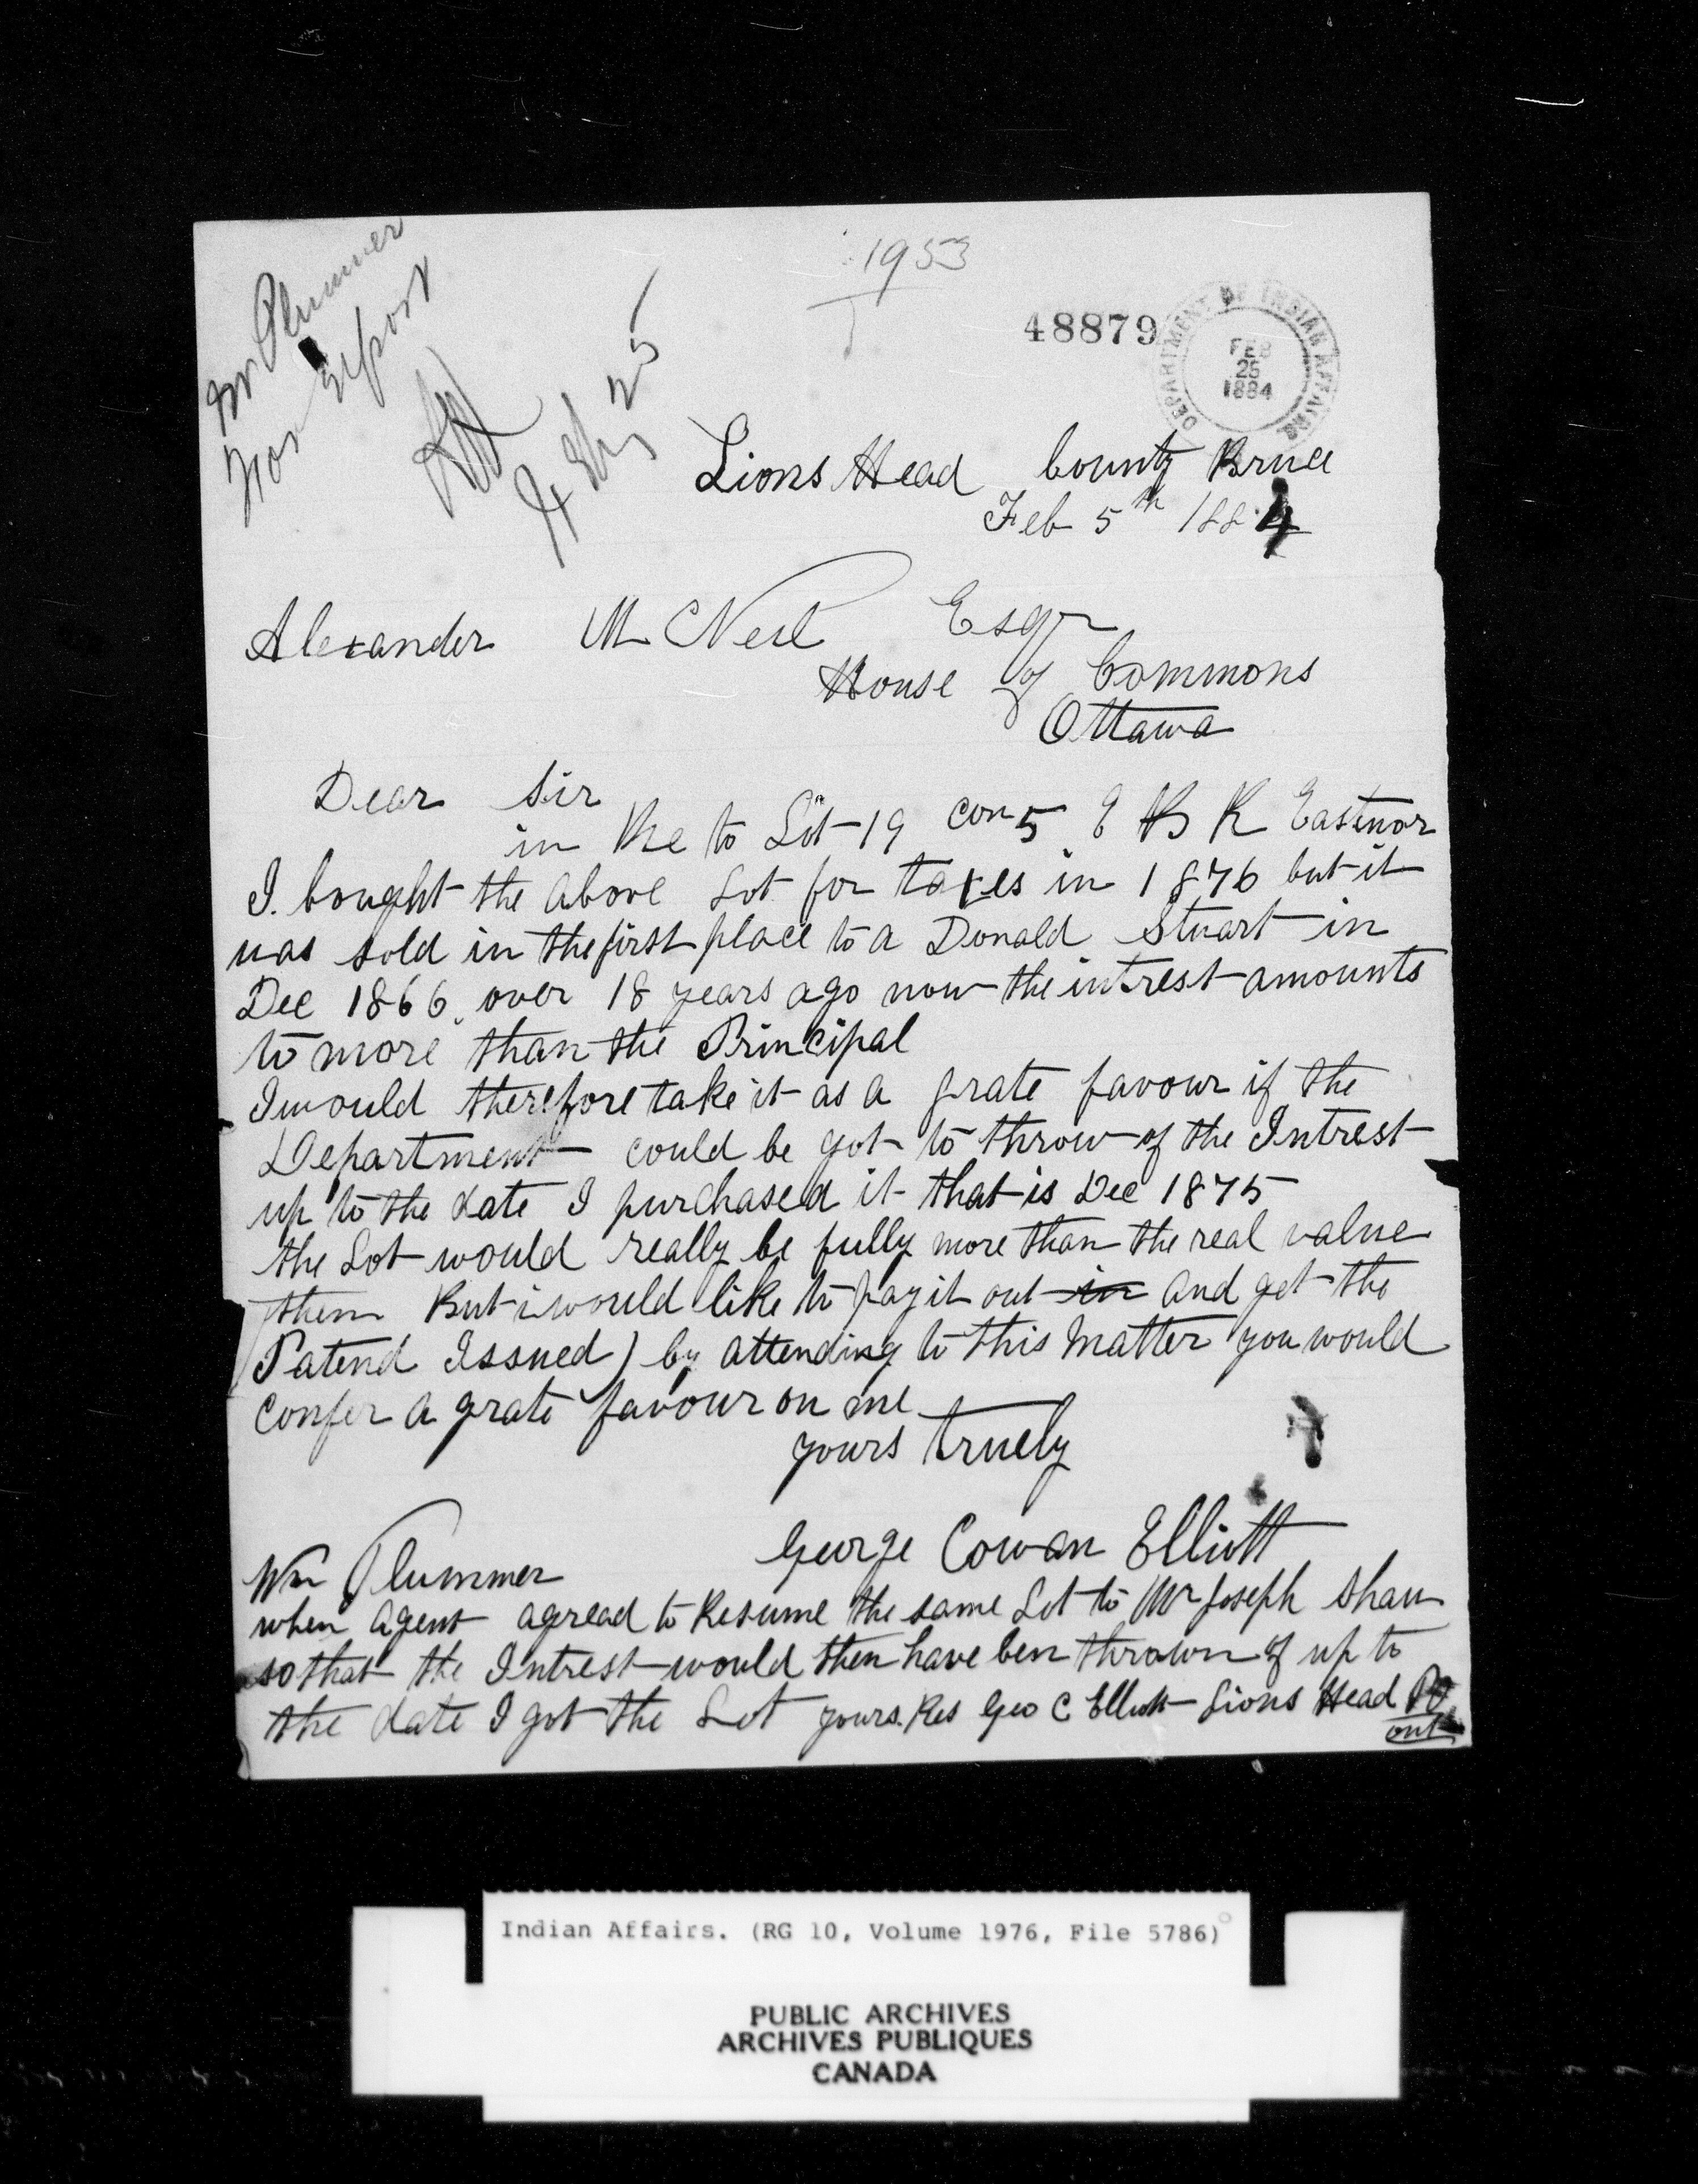 Mr Plummer
For report
Feby 25
1953
48879
DEPARTMENT OF INDIAN AFFAIRS
FEB
25
1884
Lions Head County Bruce
Feb 5th 1884
Alexander McNeil Esqr
House of Commons
Ottawa
Dear Sir
in Re to Lot 19 con 5 E B R Eastnor
I. bought the above Lot for taxes in 1876 but it
was sold in the first place to a Donald Stuart in
Dec 1866. over 18 years ago now the intrest amounts
to more than the Principal
I would therefore take it as a grate favour if the
Department could be got to throw of the Intrest
up to the date I purchased it that is Dec 1875
the Lot would really be fully more than the real value
then But i would like to pay it out in and get the
Patend Issued) by attending to this Matter you would
confer a grate favour on me
yours truely
George Cowan Elliott
Wm Plummer
when agent agread to Resume the same Lot to Mr Joseph Shaw
so that the Intrest would then have ben thrown of up to
the date I got the Lot yours. Res Geo C Elliott Lions Head PO
ont
Indian Affairs. (RG 10, Volume 1976, File 5786)
PUBLIC ARCHIVES
ARCHIVES PUBLIQUES
CANADA